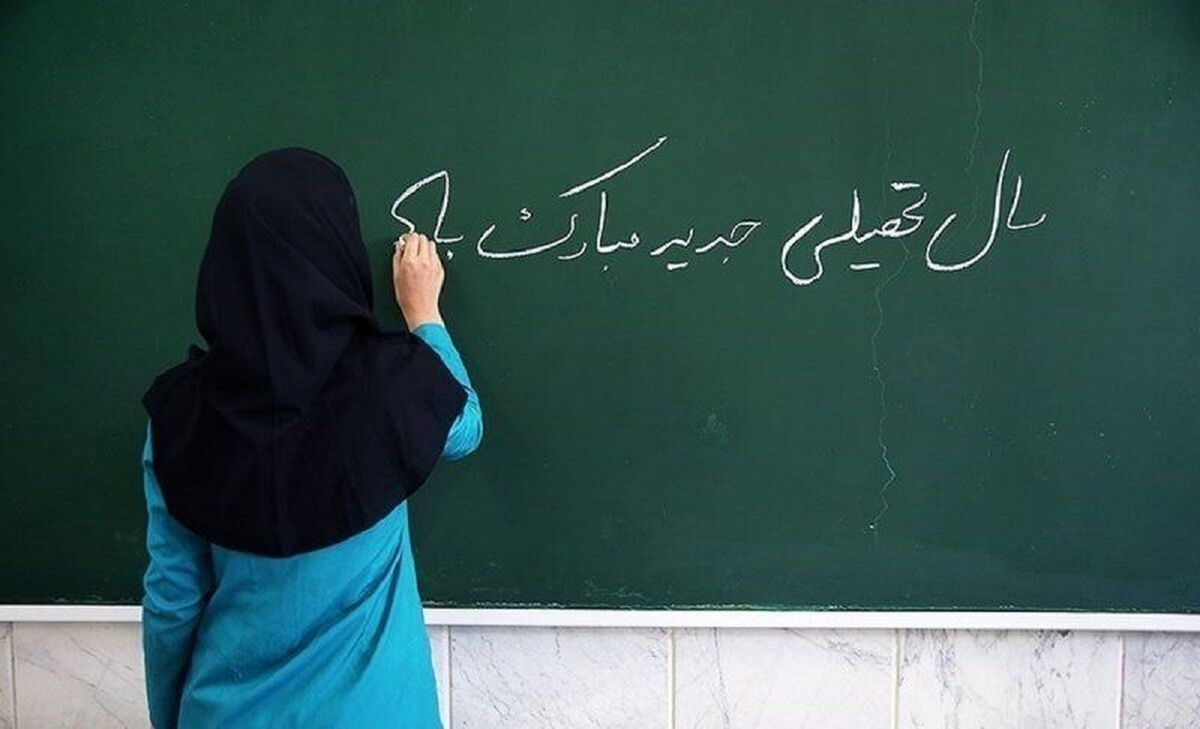 سال تحصیلی جدید مبارک باد